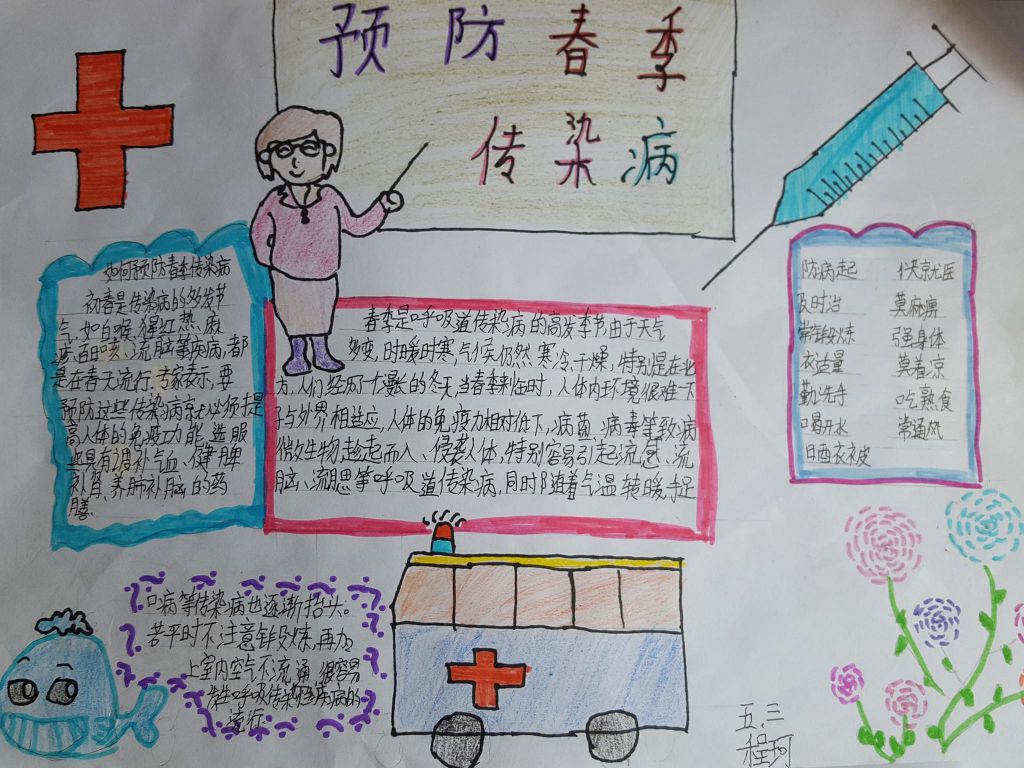 预防春季
传染病
如何预防春季传染病
初春是传染病的多发节
气,如白喉、猩红热、麻
疹、百日咳、流脑等疾病,都
是在春天流行。专家表示,要
预防这些传染病就必须提
高人体的免疫功能,选服
些具有调补气血、健脾
补肾、养肺补脑的药
膳。
春季是呼吸道传染病的高发季节由于天气
多变,时暖时寒,气候仍然寒冷、干燥,特别是在北
方,人们经历了漫长的冬天,当春季来临时,人体内环境很难一下
子与外界相适应,人体的免疫力相对低下,病菌、病毒等致病
微生物,趁起而入、侵袭人体,特别容易引起流感、流
脑、流腮等呼吸道传染病,同时随着气温转暖,
防病起 伏就医
及时治 莫麻痹
常锻炼 强身体
衣适量 莫着凉
勤洗手 吃熟食
喝开水 常通风
晒衣被
口病等传染病也逐渐抬头。
若平时不注意锻炼,再加
上室内空气不流通,很容易
发生呼吸传染性疾病的
流行
五.三
程珂